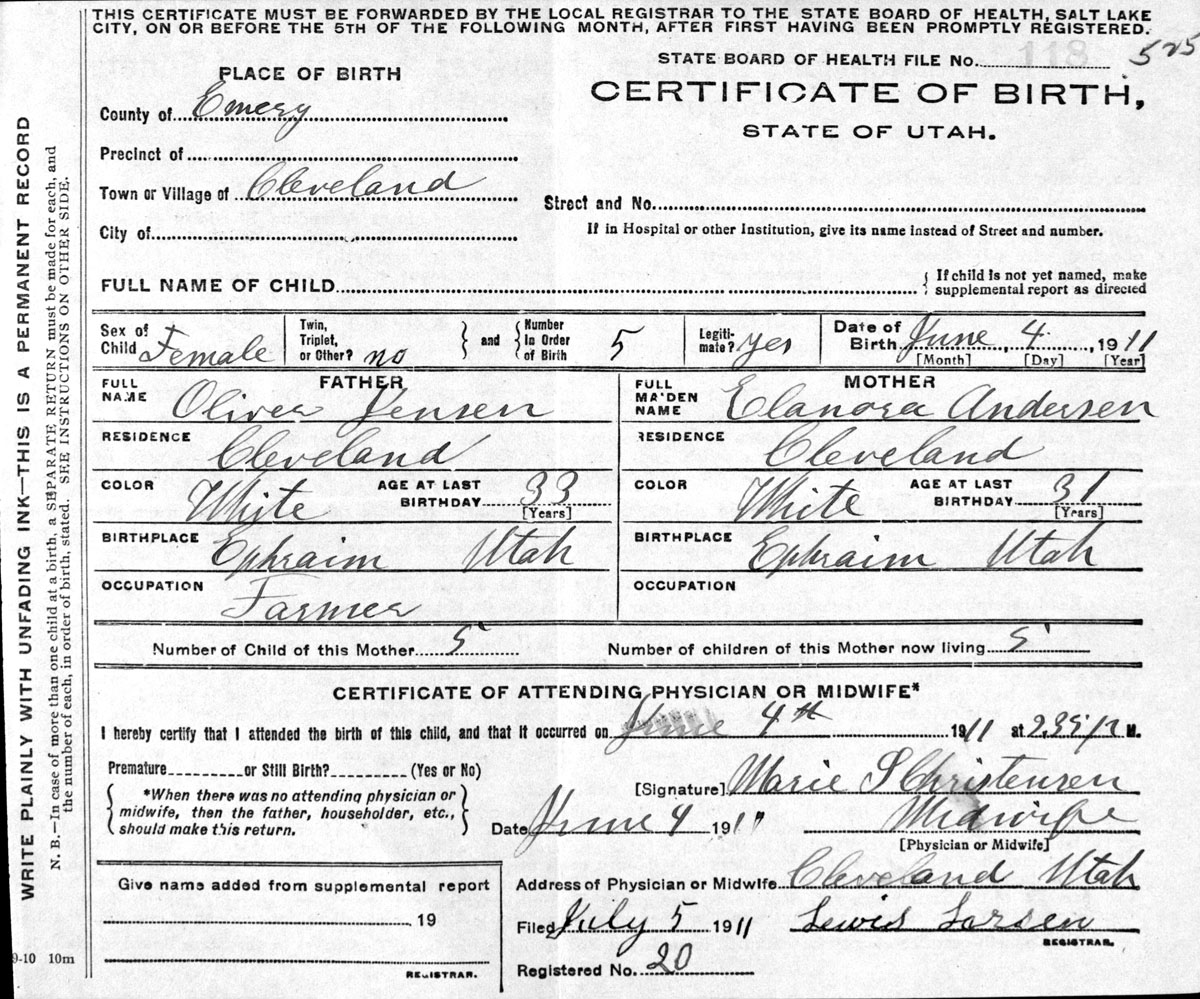 THIS CERTIFICATE MUST BE FORWARDED BY THE LOCAL REGISTRAR TO THE STATE BOARD OF HEALTH, SALT LAKE
CITY, ON OR BEFORE THE 5TH OF THE FOLLOWING MONTH, AFTER FIRST HAVING BEEN PROMPTLY REGISTERED.
WRITE PLAINLY WITH UNFADING INK—THIS IS A PERMANENT RECORD
N. B.—In case of more than one child at a birth, a SEPARATE RETURN must be made for each, and
the number of each, in order of birth, stated. SEE INSTRUCTIONS ON OTHER SIDE.
STATE BOARD OF HEALTH FILE No. 118 525
PLACE OF BIRTH
CERTIFICATE OF BIRTH,
STATE OF UTAH.
County of Emery
Precinct of
Town or Village of Cleveland
Street and No.
City of
If in Hospital or other Institution, give its name instead of Street and number.
FULL NAME OF CHILD
If child is not yet named, make
supplemental report as directed
Sex of Child Female
Twin, Triplet, or Other? no
and
Number In Order of Birth 5
Legiti-mate? yes
Date of Birth June 4, 1911
[Month] [Day] [Year]
FATHER
FULL NAME Oliver Jensen
MOTHER
FULL MAIDEN NAME Elanora Andersen
RESIDENCE Cleveland
RESIDENCE Cleveland
COLOR White AGE AT LAST BIRTHDAY 33 [Years]
COLOR White AGE AT LAST BIRTHDAY 31 [Years]
BIRTHPLACE Ephraim Utah
BIRTHPLACE Ephraim Utah
OCCUPATION Farmer
OCCUPATION
Number of Child of this Mother 5
Number of children of this Mother now living 5
CERTIFICATE OF ATTENDING PHYSICIAN OR MIDWIFE*
I hereby certify that I attended the birth of this child, and that it occurred on June 4th 1911 at M.
Premature or Still Birth? (Yes or No)
*When there was no attending physician or
midwife, then the father, householder, etc.,
should make this return.
[Signature] Marie S Christensen
Date June 4 1911 Midwife
[Physician or Midwife]
Address of Physician or Midwife Cleveland Utah
Filed July 5 1911 Lewis Larsen
REGISTRAR.
Registered No. 20
Give name added from supplemental report
19
REGISTRAR.
9-10 10m